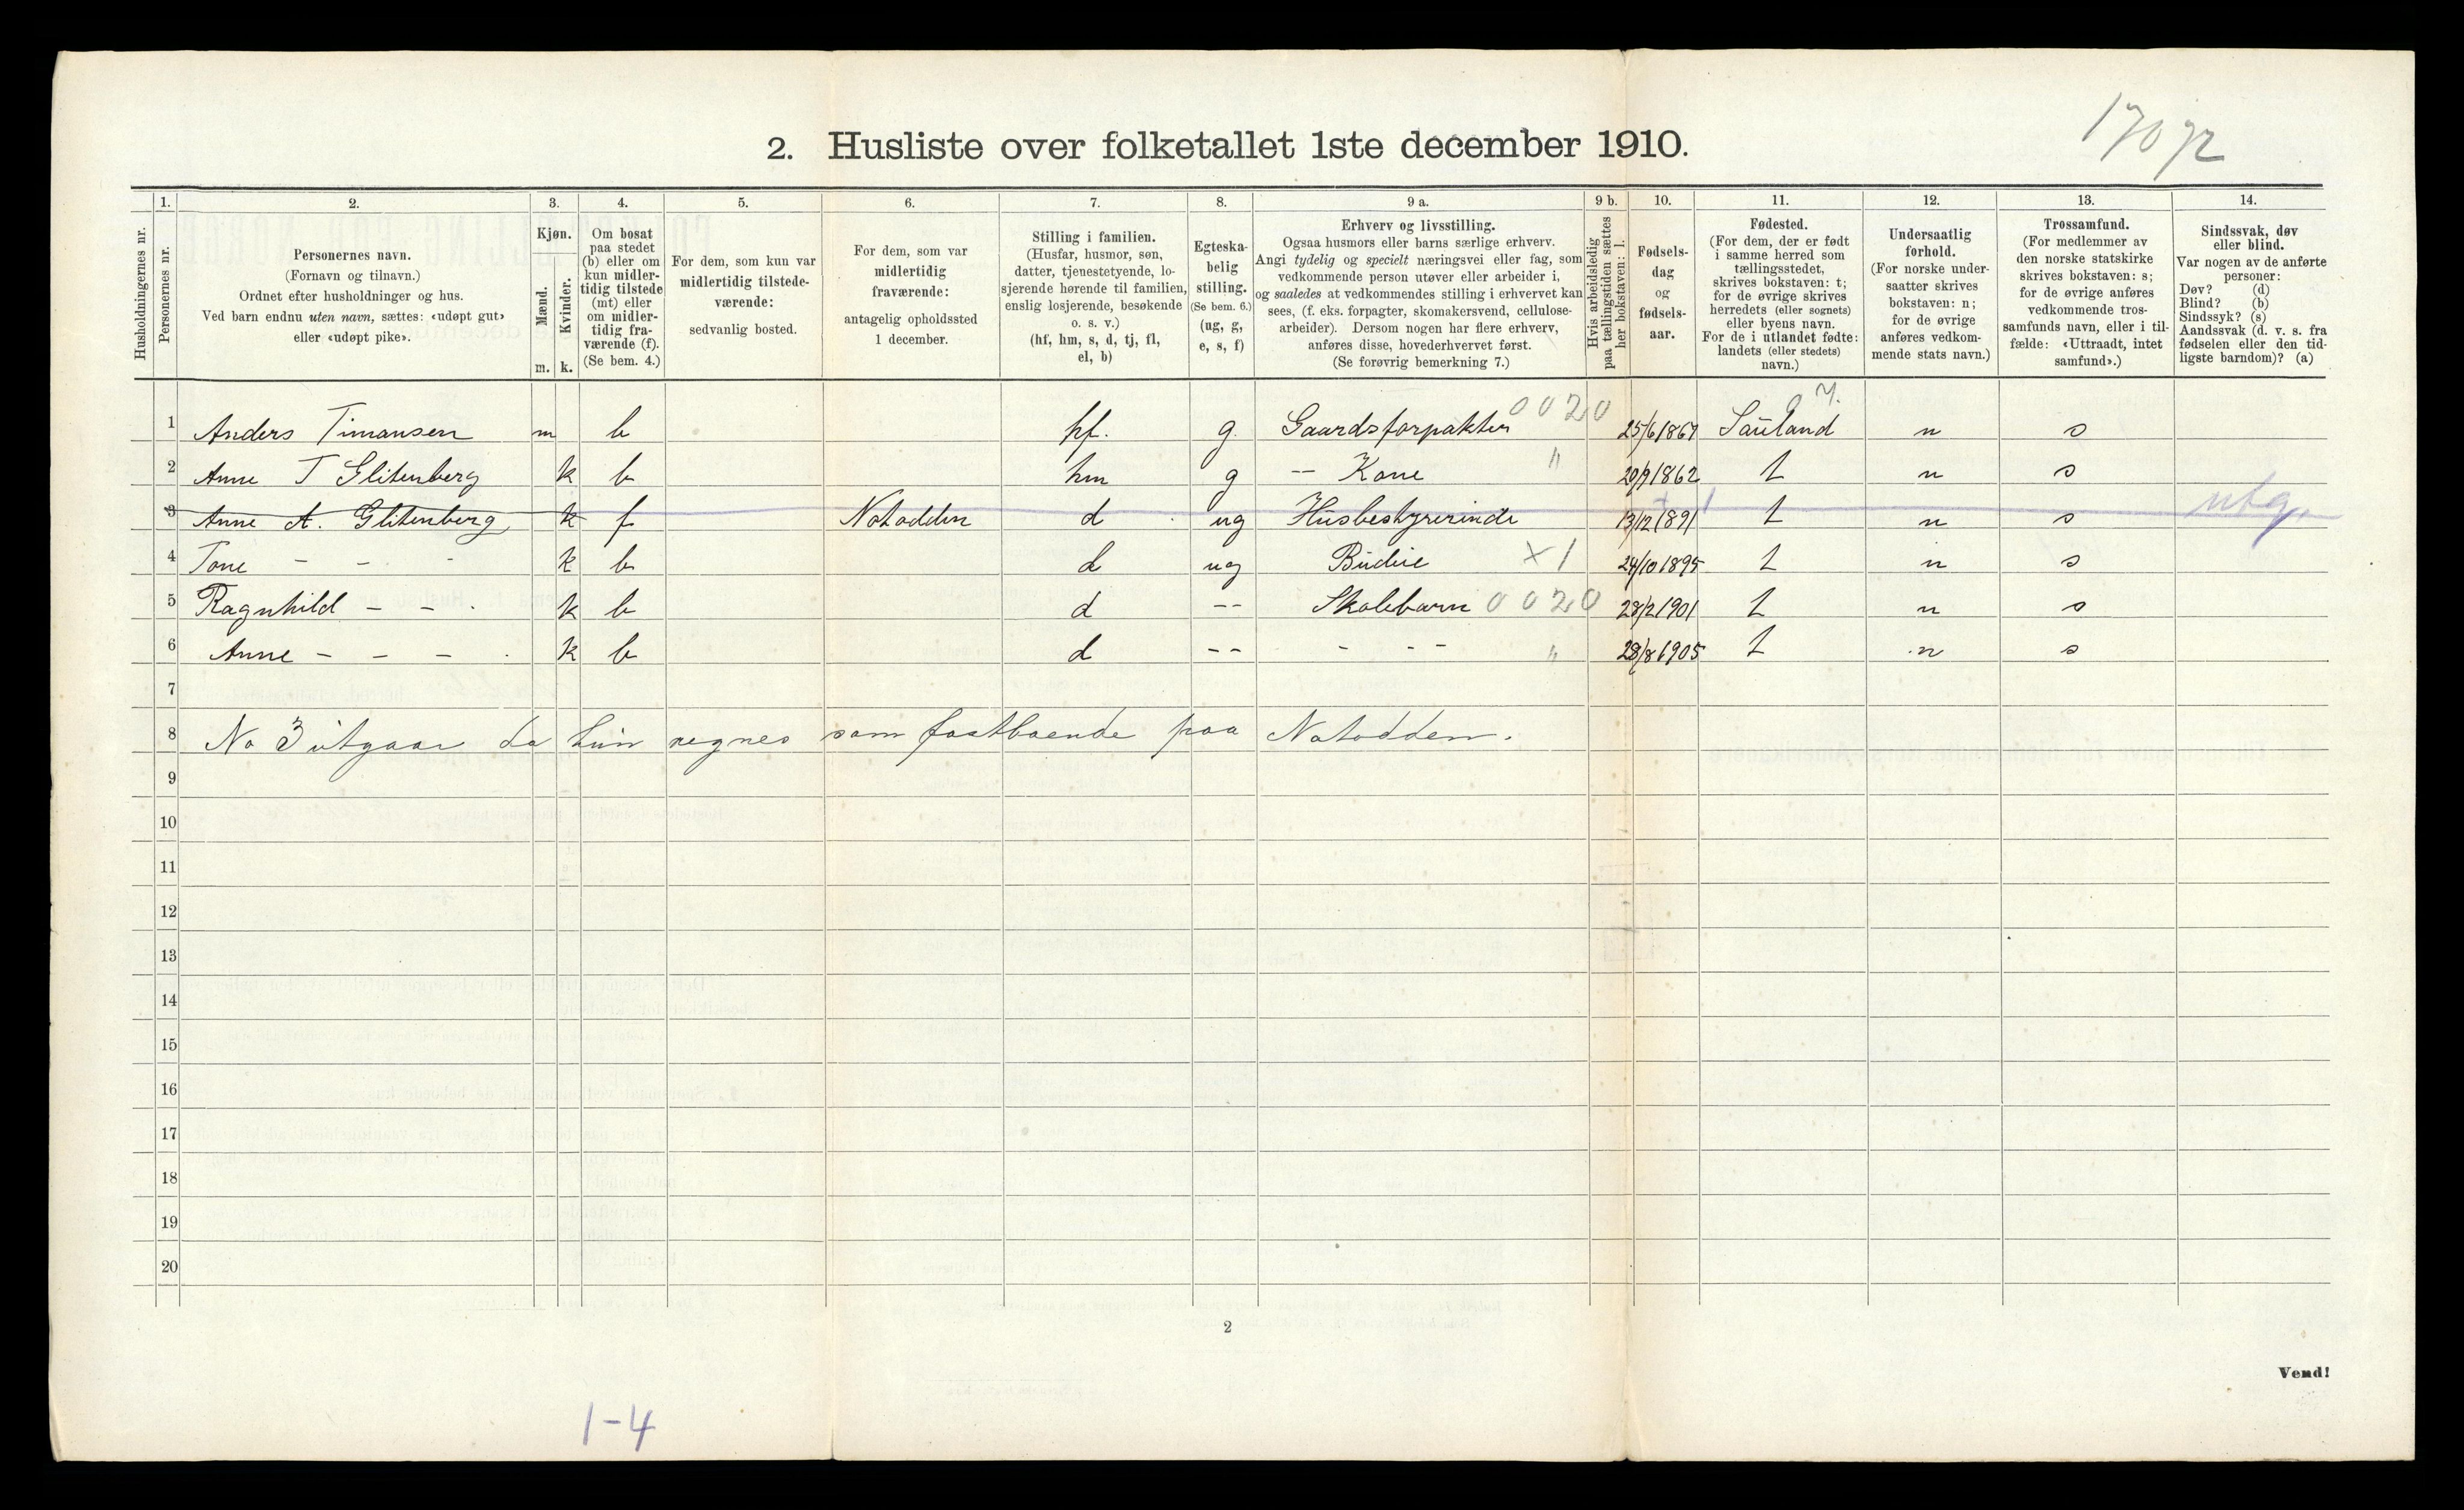 17072
2. Husliste over folketallet 1ste december 1910.
1. 2. 3. 4. 5. 6. 7. 8. 9 a. 9 b. 10. 11. 12. 13. 14.
Husholdningernes nr.
Personernes nr.
Personernes navn.
(Fornavn og tilnavn.)
Ordnet efter husholdninger og hus.
Ved barn endnu uten navn, sættes: «udøpt gut»
eller «udøpt pike».
Kjøn.
Mænd.
Kvinder.
m. k.
Om bosat
paa stedet
(b) eller om
kun midler-
tidig tilstede
(mt) eller
om midler-
tidig fra-
værende (f).
(Se bem. 4.)
For dem, som kun var
midlertidig tilstede-
værende:
sedvanlig bosted.
For dem, som var
midlertidig
fraværende:
antagelig opholdssted
1 december.
Stilling i familien.
(Husfar, husmor, søn,
datter, tjenestetyende, lo-
sjerende hørende til familien,
enslig losjerende, besøkende
o. s. v.)
(hf, hm, s, d, tj, fl,
el, b)
Egteska-
belig
stilling.
(Se bem. 6.)
(ug, g,
e, s, f)
Erhverv og livsstilling.
Ogsaa husmors eller barns særlige erhverv.
Angi tydelig og specielt næringsvei eller fag, som
vedkommende person utøver eller arbeider i,
og saaledes at vedkommendes stilling i erhvervet kan
sees, (f. eks. forpagter, skomakersvend, cellulose-
arbeider). Dersom nogen har flere erhverv,
anføres disse, hovederhvervet først.
(Se forøvrig bemerkning 7.)
Hvis arbeidsledig
paa tællingstiden sættes
her bokstaven: l.
Fødsels-
dag
og
fødsels-
aar.
Fødested.
(For dem, der er født
i samme herred som
tællingsstedet,
skrives bokstaven: t;
for de øvrige skrives
herredets (eller sognets)
eller byens navn.
For de i utlandet fødte:
landets (eller stedets)
navn.)
Undersaatlig
forhold.
(For norske under-
saatter skrives
bokstaven: n;
for de øvrige
anføres vedkom-
mende stats navn.)
Trossamfund.
(For medlemmer av
den norske statskirke
skrives bokstaven: s;
for de øvrige anføres
vedkommende tros-
samfunds navn, eller i til-
fælde: «Uttraadt, intet
samfund».)
Sindssvak, døv
eller blind.
Var nogen av de anførte
personer:
Døv? (d)
Blind? (b)
Sindssyk? (s)
Aandssvak (d. v. s. fra
fødselen eller den tid-
ligste barndom)? (a)
1 Anders Timansen m b hf. g. Gaardsforpakter 0020 25/6 1867 Sauland n s
2 Anne T Glitenberg k b hm g -- Kone " 20/9 1862 t n s
3 Anne A. Glitenberg k f Notodden d ug Husbestyrerinde 13/12 1891 t n s utg.
4 Tone - - - k b d ug Budeie x 1 24/10 1895 t n s
5 Ragnhild - - . k b d -- Skolebarn 0020 28/2 1901 t n s
6 Anne - - - . k b d -- - - - " 28/8 1905 t n s
7
8 No 3 utgaar da hun regnes som fastboende paa Notodden.
9
10
11
12
13
14
15
16
17
18
19
20
2
Vend!
1-4